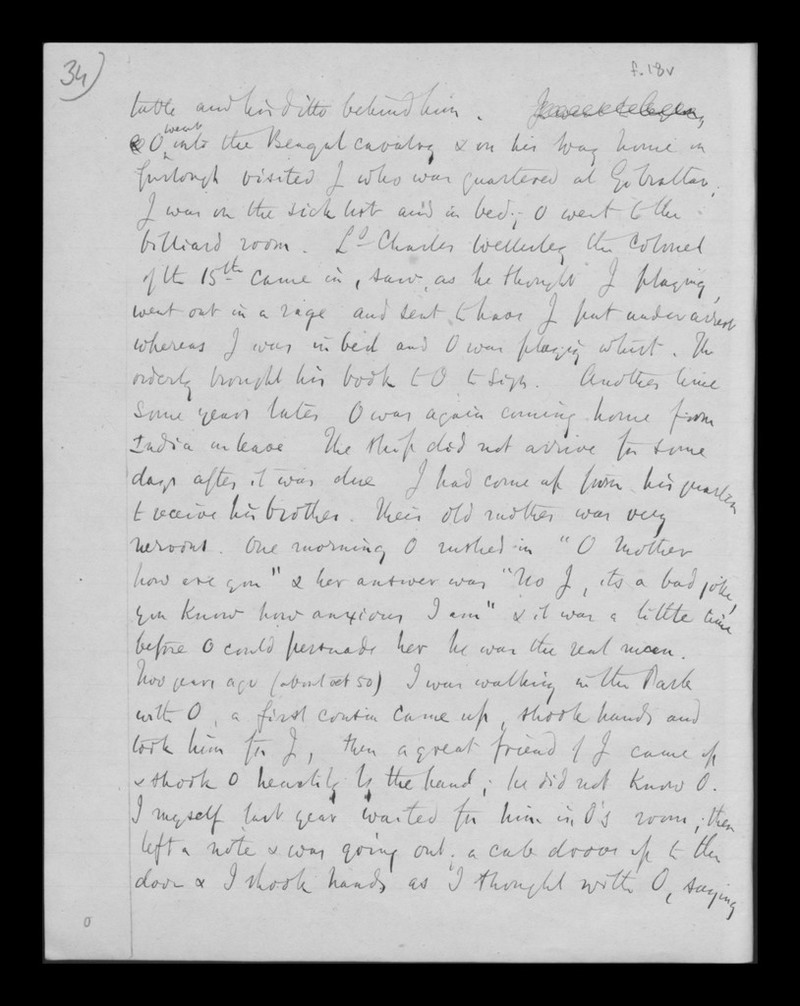 34)
f.18v
table and his ditto behind him.
& O went into the Bengal cavalry & on his way home on
furlough visited J who was quartered at Gibraltar.
J was on the sick list and in bed; O went to the
billiard room. Ld Charles Wellesley the Colonel
of the 15th came in, saw, as he thought J playing,
went out in a rage and sent to have J put under arrest
whereas J was in bed and O was playing whist. The
orderly brought his book to O to sign. Another time
some years later O was again coming home from
India on leave The ship did not arrive for some
days after it was due J had come up from his quarters
to receive his brother. Their old mother was very
nervous. One morning O rushed in "O Mother
how are you" & her answer was "No J, its a bad joke,
you know how anxious I am" & it was a little time
before O could persuade her he was the real man.
Two years ago (about aet 50) I was walking in the Park
with O, a first cousin came up, shook hands and
took him for J, then a great friend of J came up
& shook O heartily by the hand; he did not know O.
I myself last year waited for him in O's room; then
left a note & was going out; a cab drove up to the
door & I shook hands as I thought with O, saying